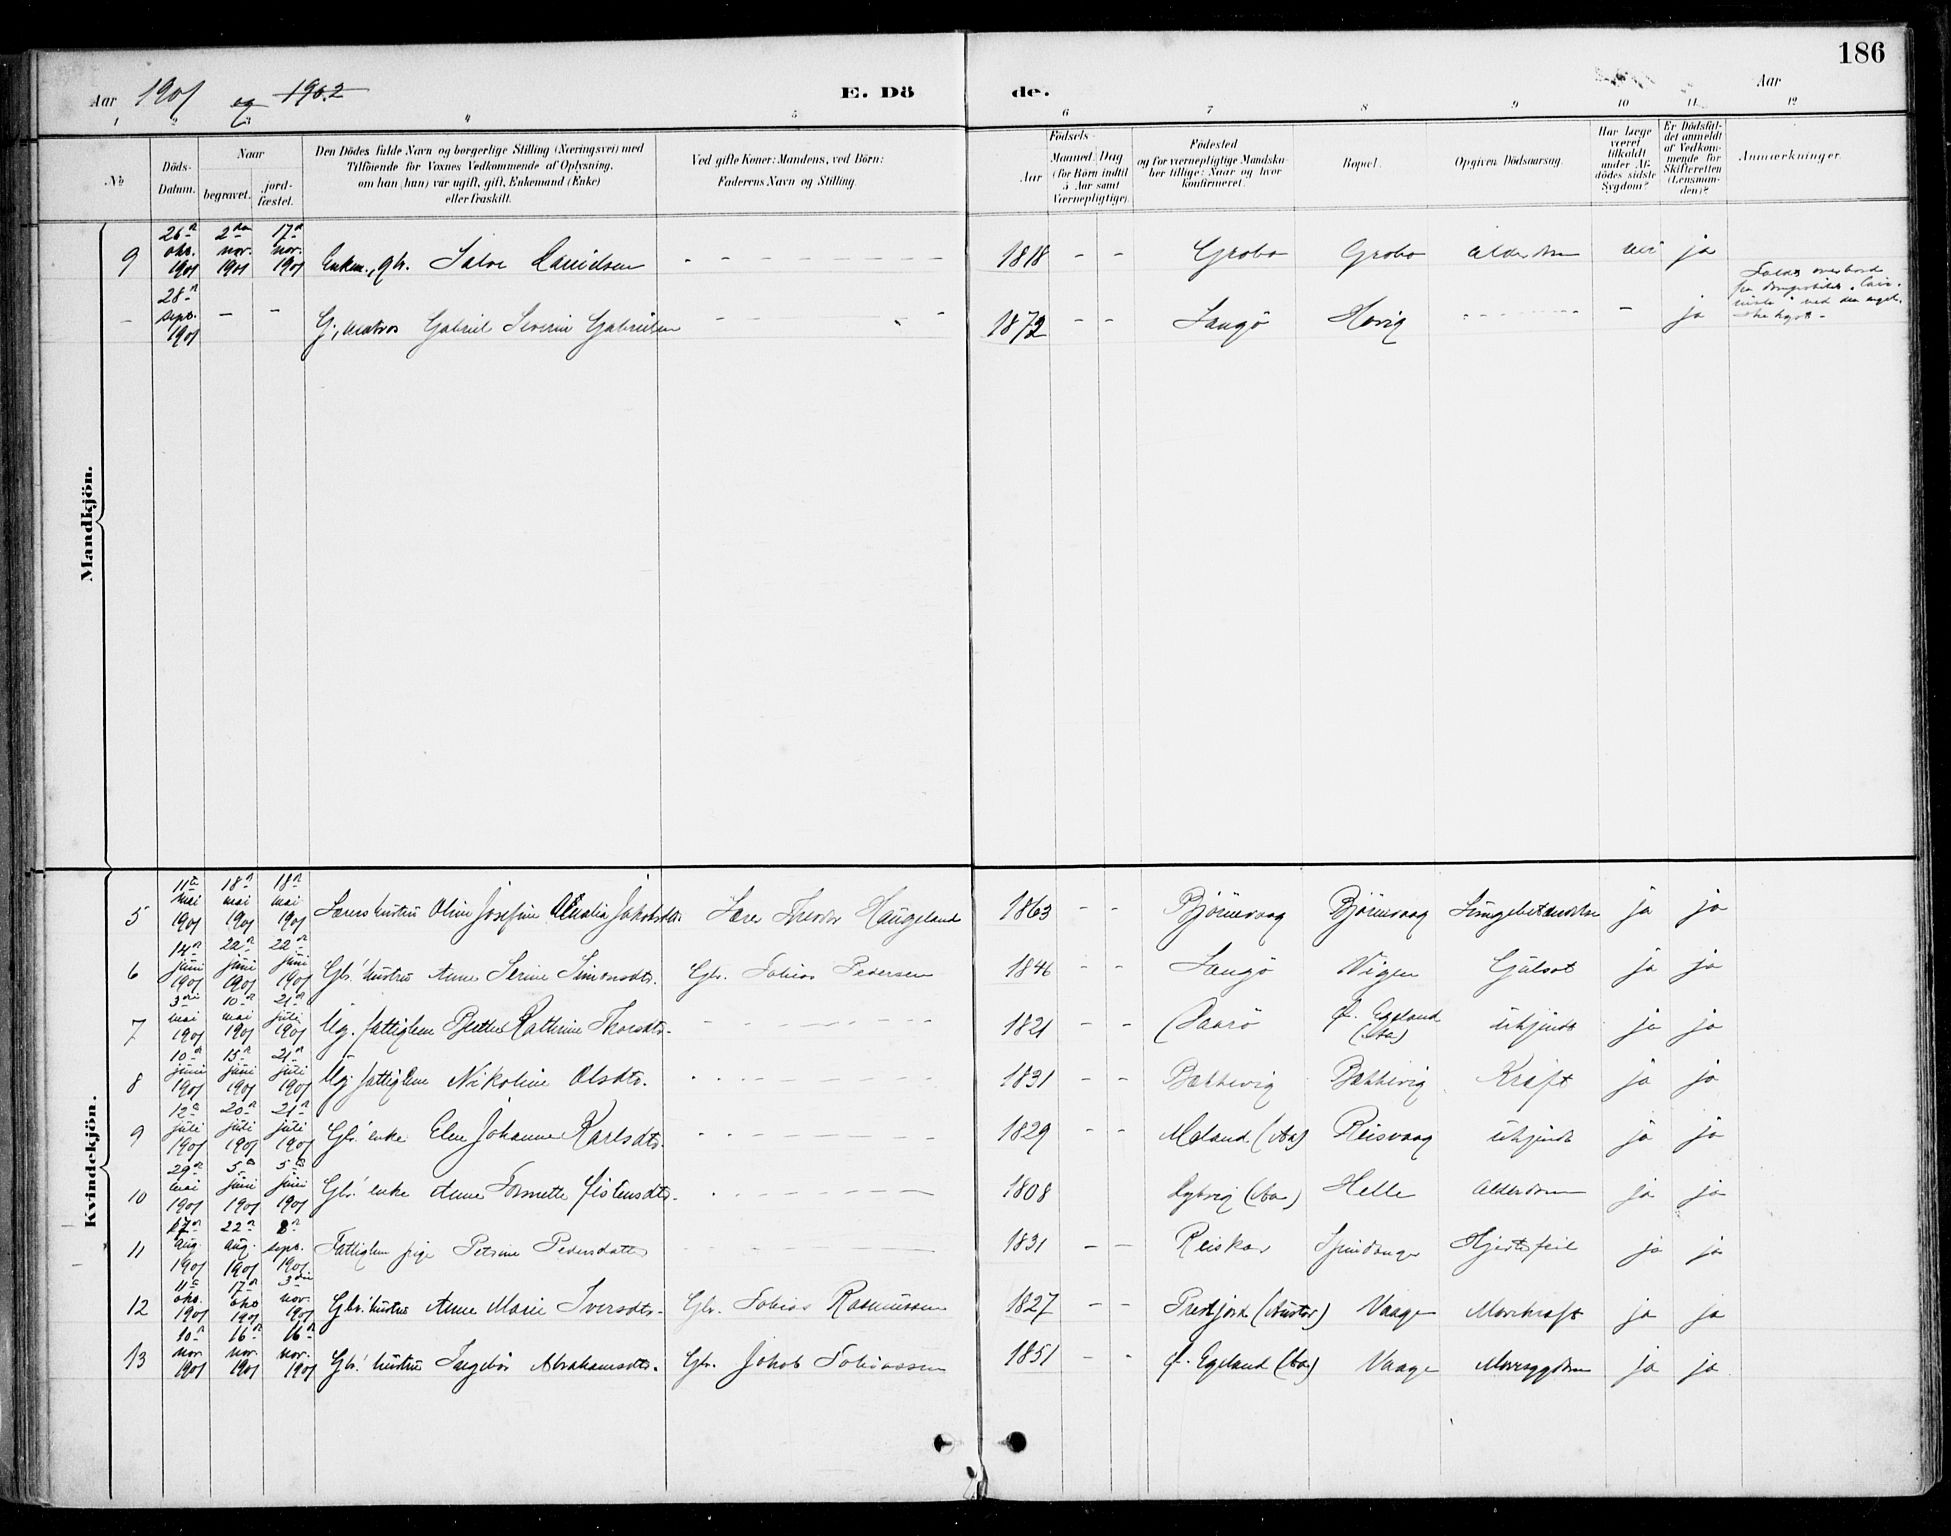 186
Aar 1901 og 1902 E. Dö de. Aar
1 2 3 4 5 6 7 8 9 10 11 12
No
Döds-Datum.
Naar
begravet.
jord-fæstet.
Den Dödes fulde Navn og borgerlige Stilling (Næringsvei) med
Tilföiende for Voxnes Vedkommende af Oplysning,
om han (hun) var ugift, gift, Enkemand (Enke)
eller fraskilt.
Ved gifte Koner: Mandens, ved Börn:
Faderens Navn og Stilling.
Födsels-
Aar
Maaned. Dag
(for Börn indtil
5 Aar samt
Værnepligtige).
Födested
og for værnepligtige Mandska-
ber tillige: Naar og hvor
konfirmeret.
Bopæl.
Opgiven Dödsaarsag.
Har Læge
været
tilkaldt
under Af-
dödes sidste
Sygdom?
Er Dödsfal-
det anmeldt
af Vedkom-
mende for
Skifteretten
(Lensman-
den)?
Anmærkninger.
Mandkjön.
9 26 okt. 1901 2den nov. 1901 17 nov. 1901 Enkem., gbr. Salve Davidsen - - - 1818 - - Grobo Grobo Alderdom nei ja
- 28 sept. 1901 - - G., matros Gabriel Severin Gabrielsen - - - 1872 - - Langö Hovig - - - - ja
Faldt overbord
fra
ved den engel-
ske kyst.
Kvindekjön.
5 11 mai 1901 18 mai 1901 18 mai 1901 Lærers hustru Oline Josefine Amalia Jakobsdtr. Lærer Theodor Haugeland 1863 - - Björnevaag Björnevaag Lungebetændelse ja ja
6 14 juni 1901 22 juni 1901 22 juni 1901 Gbr. hustru Anne Serine Simonsdtr. Gbr. Tobias Pedersen 1846 - - Langö Vigen Gulsot ja ja
7 3die mai 1901 10 mai 1901 21 juli 1901 Ug. fattiglem Berthe Kathrine Thorsdtr. - - - 1821 - - Egeland (Aa) ukjendt ja ja
8 10 juni 1901 15 juni 1901 21 juli 1901 Ug. fattiglem Nikoline Olsdtr. - - - 1831 - - Bækkevig Bækkevig Kræft ja ja
9 12 juli 1901 20 juli 1901 21 juli 1901 Gbr. enke Elen Johanne Karlsdtr. - - - 1829 - - Meland (Aa) Reisvaag ukjendt ja ja
10 29 mai 1901 5 juni 1901 5 juni 1901 Gbr. enke Anne Tomette Gistensdtr. - - - 1808 (Aa) Helle Alderdom ja ja
11 17 aug. 1901 22 aug. 1901 8 sept. 1901 Fattiglem pige Petrine Pedersdatter - - - 1831 - - Reiskar Spindanger Hjertefeil ja ja
12 11 okt. 1901 17 okt 1901 3die nov. 1901 Gbr. hustru Anne Marie Iversdtr. Gbr. Tobias Rasmussen 1827 - - (Austad) Vaage Mavekræft ja ja
13 10 nov. 1901 16 nov. 1901 16 nov. 1901 Gbr. hustru Ingebor Abrahamsdtr. Gbr. Jakob Tobiassen 1851 - - Egeland (Aa) Vaage Mavesygdom ja ja